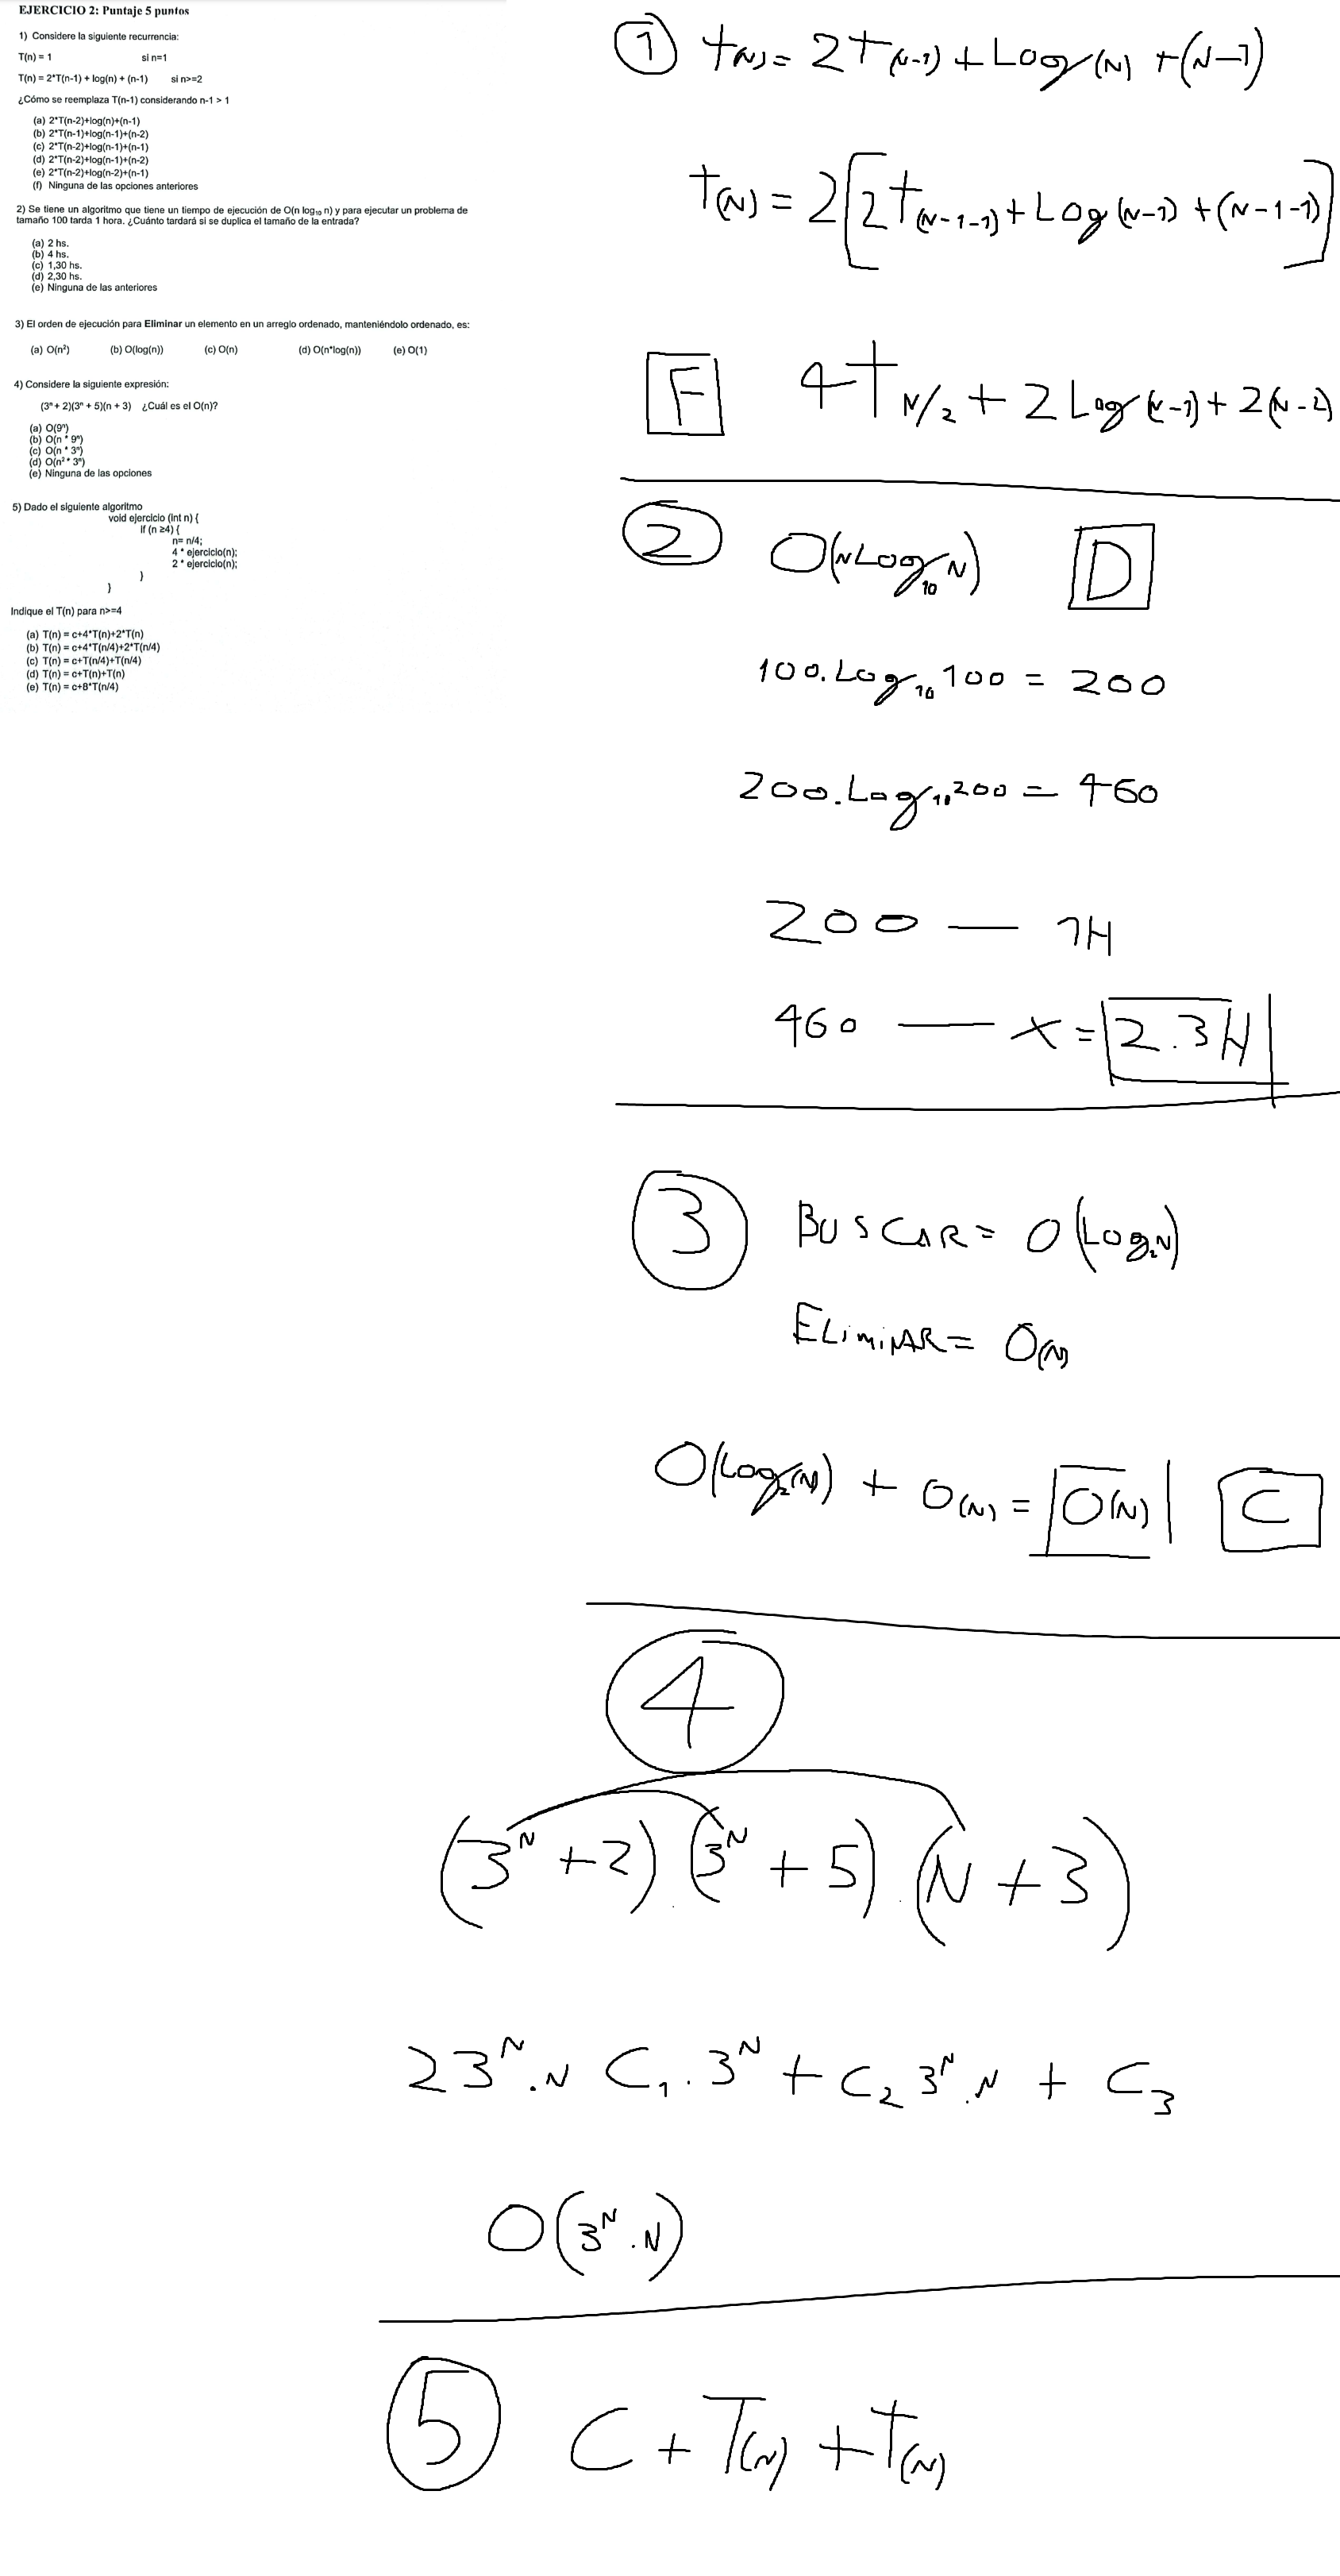 EJERCICIO 2: Puntaje 5 puntos
1) Considere la siguiente recurrencia:
T(n) = 1 si n=1
T(n) = 2*T(n-1) + log(n) + (n-1) si n>=2
¿Cómo se reemplaza T(n-1) considerando n-1 > 1
(a) 2*T(n-2)+log(n)+(n-1)
(b) 2*T(n-1)+log(n-1)+(n-2)
(c) 2*T(n-2)+log(n-1)+(n-1)
(d) 2*T(n-2)+log(n-1)+(n-2)
(e) 2*T(n-2)+log(n-2)+(n-1)
(f) Ninguna de las opciones anteriores
2) Se tiene un algoritmo que tiene un tiempo de ejecución de O(n log₁₀ n) y para ejecutar un problema de
tamaño 100 tarda 1 hora. ¿Cuánto tardará si se duplica el tamaño de la entrada?
(a) 2 hs.
(b) 4 hs.
(c) 1,30 hs.
(d) 2,30 hs.
(e) Ninguna de las anteriores
3) El orden de ejecución para Eliminar un elemento en un arreglo ordenado, manteniéndolo ordenado, es:
(a) O(n²) (b) O(log(n)) (c) O(n) (d) O(n*log(n)) (e) O(1)
4) Considere la siguiente expresión:
(3ⁿ + 2)(3ⁿ + 5)(n + 3) ¿Cuál es el O(n)?
(a) O(9ⁿ)
(b) O(n * 9ⁿ)
(c) O(n * 3ⁿ)
(d) O(n² * 3ⁿ)
(e) Ninguna de las opciones
5) Dado el siguiente algoritmo
void ejercicio (int n) {
if (n ≥4) {
n= n/4;
4 * ejercicio(n);
2 * ejercicio(n);
}
}
Indique el T(n) para n>=4
(a) T(n) = c+4*T(n)+2*T(n)
(b) T(n) = c+4*T(n/4)+2*T(n/4)
(c) T(n) = c+T(n/4)+T(n/4)
(d) T(n) = c+T(n)+T(n)
(e) T(n) = c+8*T(n/4)
① T(N) = 2T(N-1) + Log(N) + (N-1)
T(N) = 2[2T(N-1-1) + Log(N-1) + (N-1-1)]
F 4T N/2 + 2Log(N-1) + 2(N-2)
② O(N Log₁₀ N) D
100.Log₁₀ 100 = 200
200.Log₁₀ 200 = 460
200 — 1H
460 — X = 2.3H
③ BUSCAR = O(Log₂N)
ELiMiNAR = O(N)
O(Log₂(N)) + O(N) = O(N) C
④
(3ᴺ + 2).(3ᴺ + 5).(N + 3)
23ᴺ.N C₁.3ᴺ + C₂ 3ᴺ.N + C₃
O(3ᴺ.N)
⑤ C + T(N) + T(N)